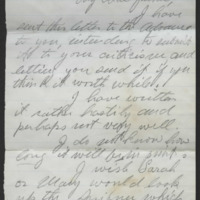 I have
sent this letter to the Advance
to you, intending to submit
it to your criticism and
letting you send it if you
think it worth while.
I have written
it rather hastily and
perhaps not very well.
I do not know how
long it will be in
I wish Sarah
or Mary would look
up the which